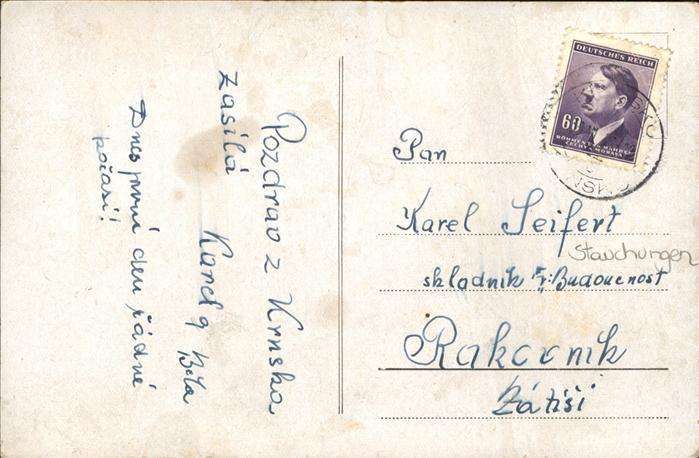 Pozdrav z Krnska
zasílá
Karel a Béla
Dnes první den řádné
počasí!
DEUTSCHES REICH
60
BÖHMEN UND MÄHREN
ČECHY A MORAVA
Pan
Karel Seifert
Stauchungen
skladník fy: Budoucnost
Rakovník
Zátiší